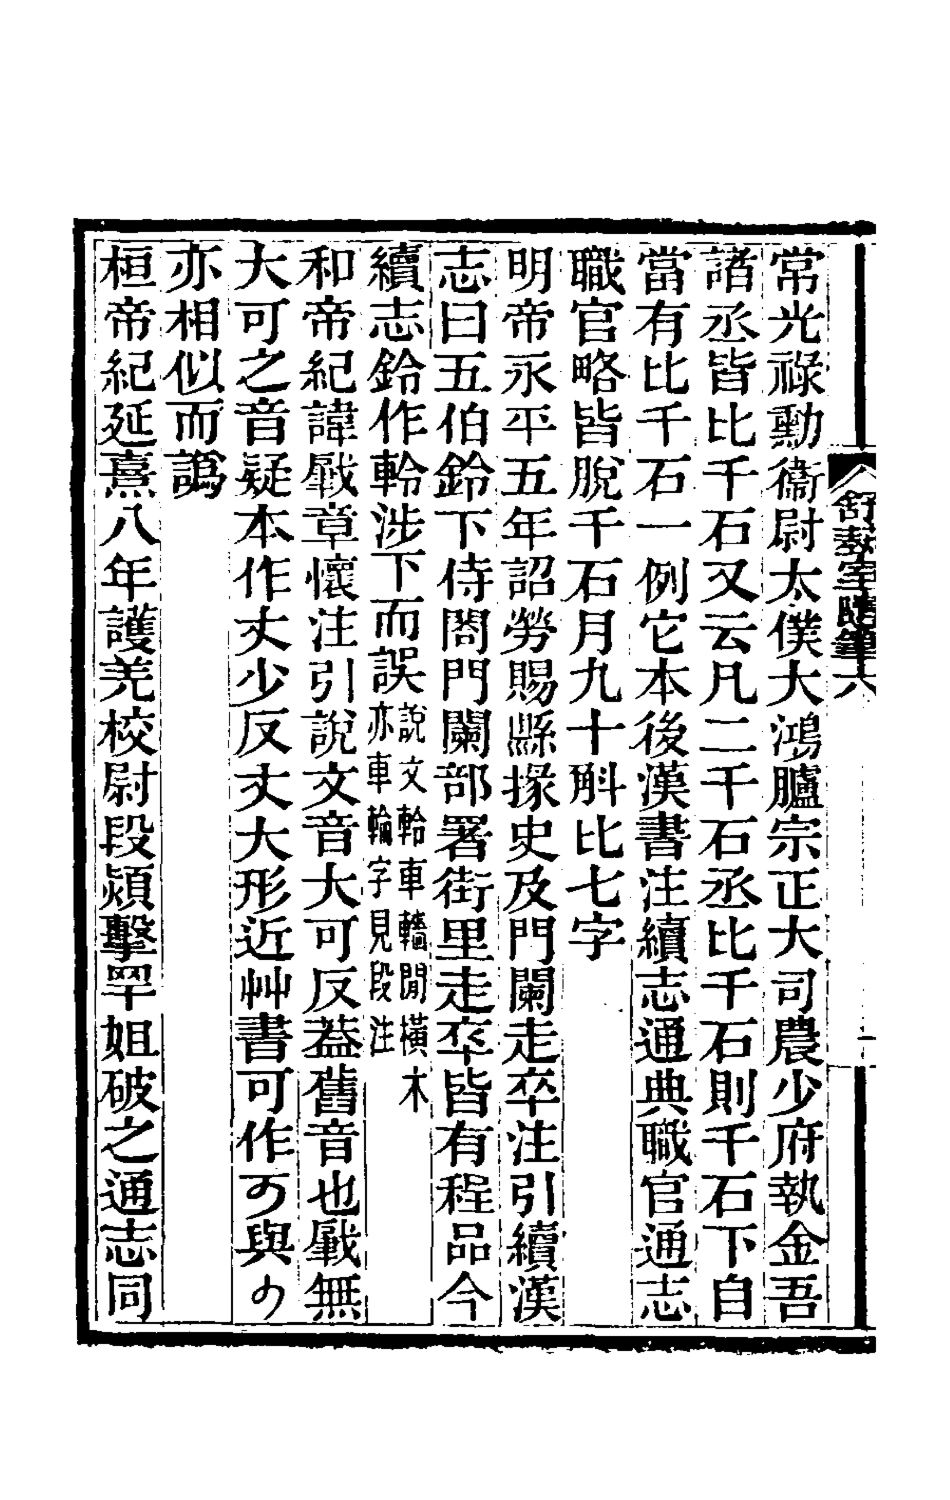 舒藝室隨筆六
常光祿勳衞尉太僕大鴻臚宗正大司農少府執金吾
諸丞皆比千石又云凡二千石丞比千石則千石下自
當有比千石一例它本後漢書注續志通典職官通志
職官略皆脫千石月九十斛比七字
明帝永平五年詔勞賜縣掾史及門闌走卒注引續漢
志曰五伯鈴下侍閤門闌部署街里走卒皆有程品今
續志鈴作軨涉下而誤說文軨車轖閒橫木亦車輪字見段注
和帝紀諱㕟章懷注引說文音大可反葢舊音也㕟無
大可之音疑本作丈少反丈大形近艸書可作可與少
亦相似而譌
桓帝紀延熹八年護羌校尉段熲擊罕姐破之通志同